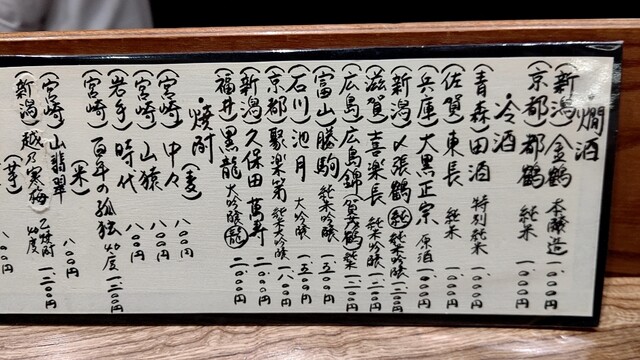 ・燗酒
(新潟)金鶴 本醸造 一、〇〇〇円
(京都)都鶴 純米 一、〇〇〇円
・冷酒
(青森)田酒 特別純米 一、〇〇〇円
(佐賀)東長 純米 一、〇〇〇円
(兵庫)大黒正宗 原酒 一、〇〇〇円
(新潟)〆張鶴 純 純米吟醸 一、二〇〇円
(滋賀)喜楽長 純米吟醸 一、二〇〇円
(広島)広島錦(賀茂鶴)純米 一、二〇〇円
(富山)勝駒 純米吟醸 一、五〇〇円
(石川)池月 大吟醸 一、五〇〇円
(京都)聚楽第 純米大吟醸 一、八〇〇円
(新潟)久保田 萬寿 二、〇〇〇円
(福井)黒龍 大吟醸 龍 二、〇〇〇円
・焼酎
(麦)
(宮崎)中々 八〇〇円
(宮崎)山猿 八〇〇円
(岩手)時代 八〇〇円
(宮崎)百年の孤独 40度 一、二〇〇円
(米)
(宮崎)山翡翠 八〇〇円
(新潟)越乃寒梅 乙焼酎 40度 一、二〇〇円
(芋)
八〇〇円